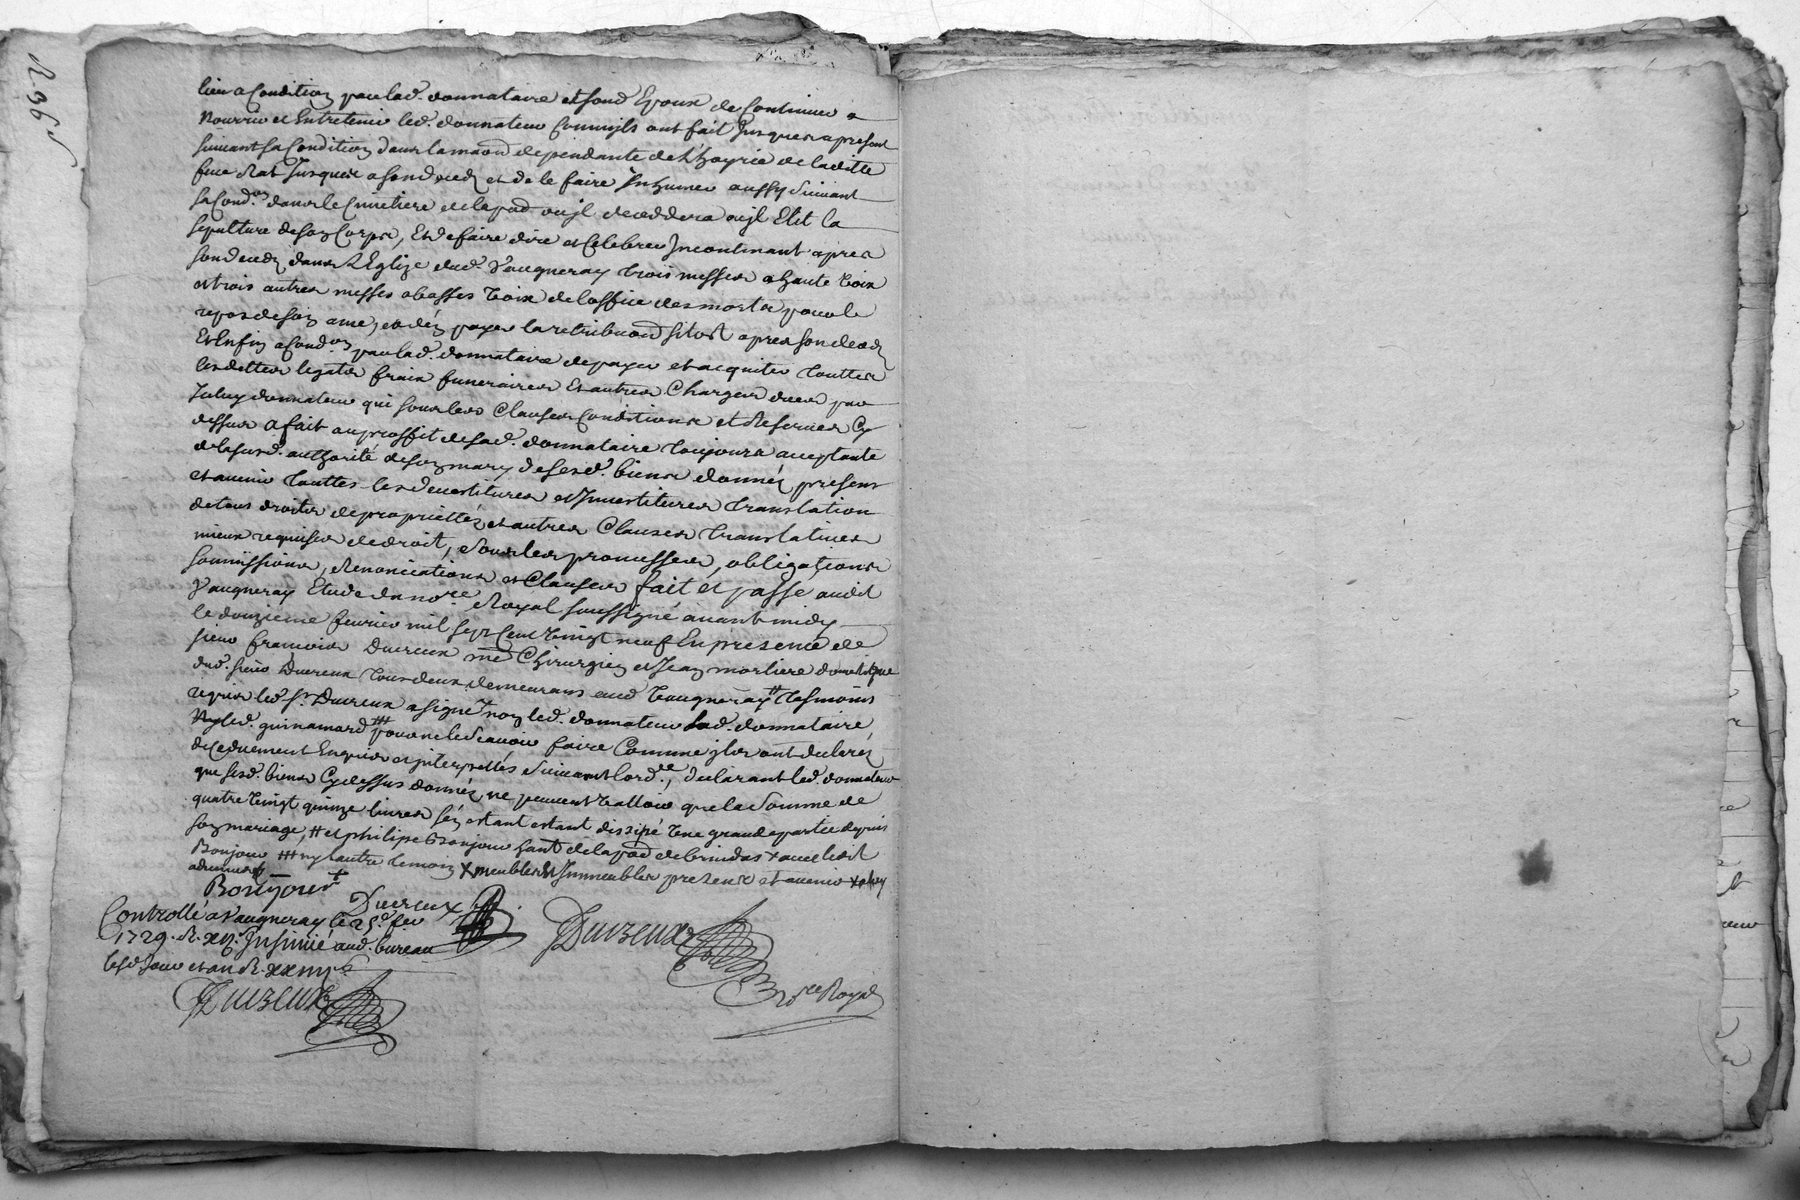 lieu a Condition par lad. donnataire et sond Epoux de Continuer a
Nourrir et Entretenir led. donnateur Comm'jls ont fait Jusques a present
suivant sa Condition dans la maon dependante de L'hoyrie de laditte
feue Rat Jusques a son deceds et de le faire Inhumer aussy suivant
sa Cond.on dans le Cimetiere de la pad ou jl deceddera ou jl Elit la
sepulture de son Corps, Et de faire dire et Celebrer Jncontinant apres
son deceds dans L'Eglize dud. Vaugneray trois messes a haute voix
et trois autres messes a basses voix de loffice des morts pour le
repos de son ame, et d'en payer la retribuaon sitost apres son deceds
Et Enfin a Cond.on par lad. donnataire de payer et acquiter touttes
les dettes legats fraix funeraires Et autres Charges dues par
Jceluy donnateur qui sous les Clauses Conditions et Reserves Cy
dessus a fait au proffit de sad. donnataire toujours acceptante
de la susd. authorité de son mary de sesd. biens donnés presens
et avenir touttes les devestitures et Jnvestitures translation
de tous droits de proprietté et autres Clauses translatives
mieux requises de droit, sous les promesses, obligations
soumissions, Renonciations et Clauses fait et passé audit
Vaugneray Etude du no.re Royal soussigné avant midy
le douzieme fevrier mil sept Cent vingt neuf En presence de
sieur francois Ducreux me Chirurgien et Jean morliere domestique
dud. sieur Ducreux tous deux demeurans aud Vaugneray # tesmoins
requis led. Sr. Ducreux a signé non led. donnateur lad. donnataire
Ny led. guinamard ### pour ne le scavoir faire Comme jls ont declaré
de Ce duement Enquis et jnterpellés suivant lord.ce, declarant led. donnateur
que sesd. biens Cy dessus donnés ne peuvent valloir que la somme de
quatre vingt quinze livres s'en estant estant dissipé une grande partie depuis
son mariage, # et philipe Bonjour hant de la pad de brindas + avec led
Bonjour ### ny lautre temoin x meubles et Jmmeubles presens et avenir
Bonjour
Ducreux
Controllé a Vaugneray le 25e fev
1729. R. xij s Jnsinué aud. bureau
lesd Jour et an R.
Duvzeux
Duvzeux
No.re Royal